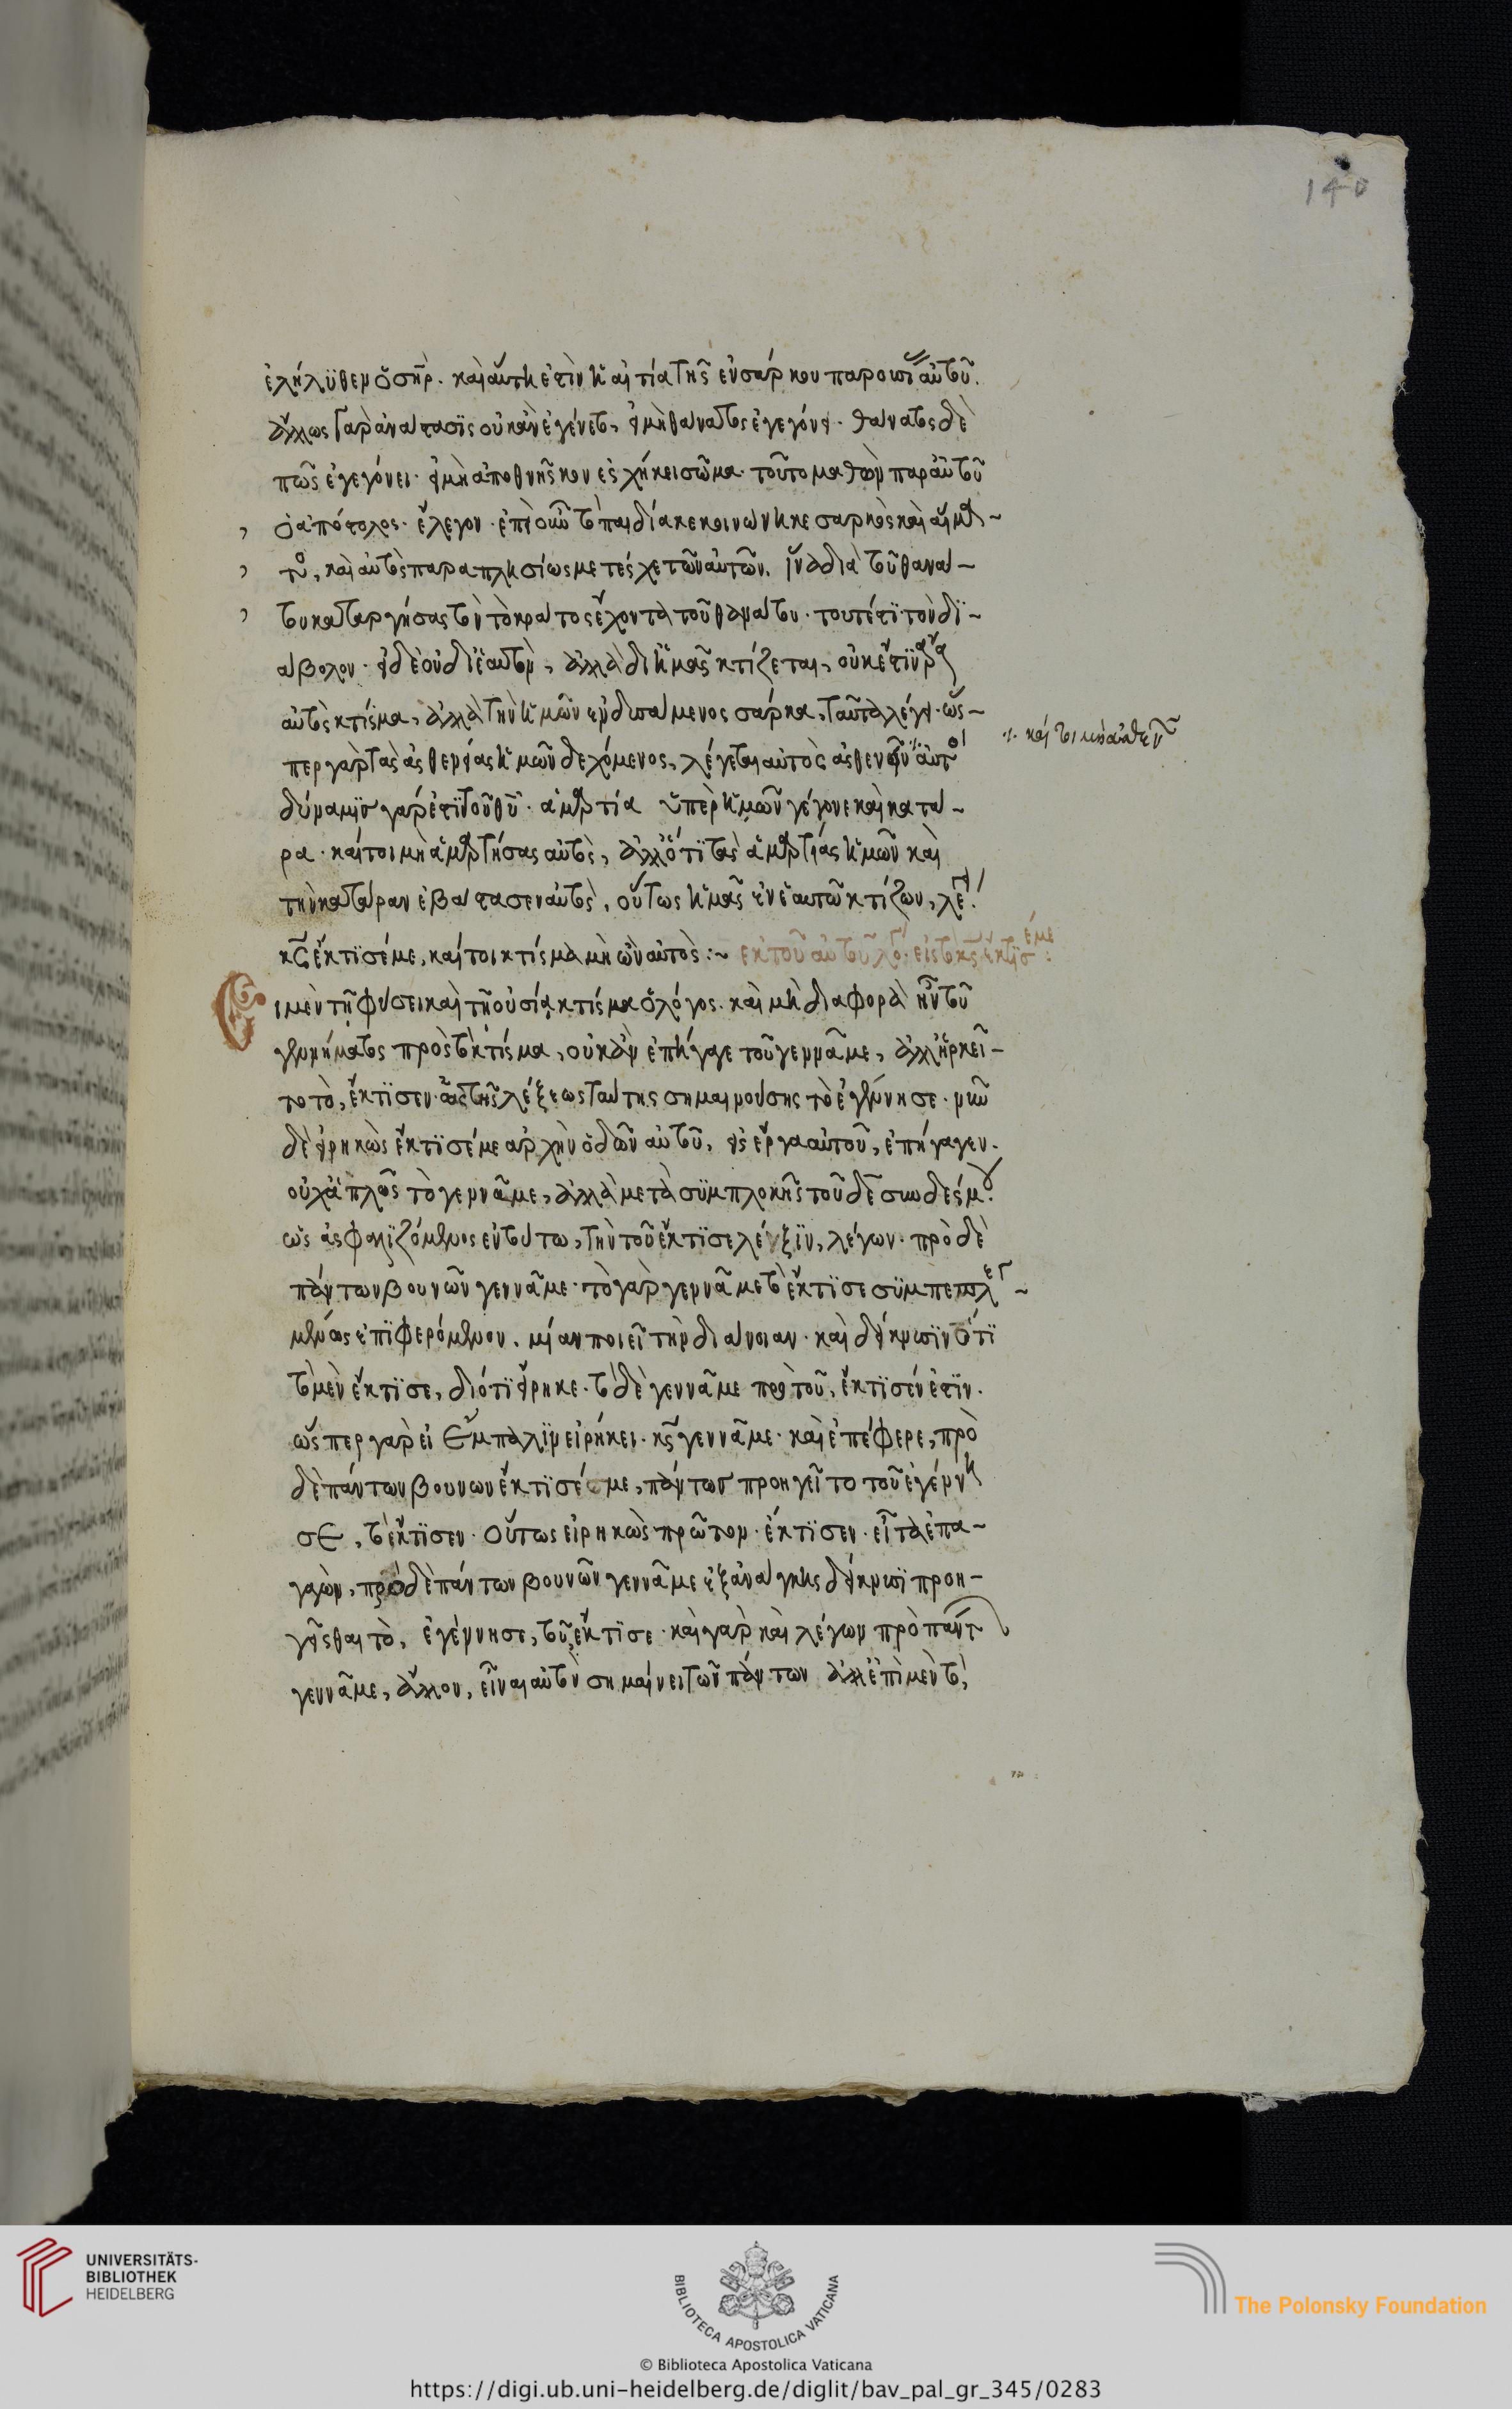 140
ἐλήλυθεν ὁ σηρ. καὶ αὕτη ἐστὶν ἡ αἰτία τῆς ἐνσάρκου παρουσί αὐτοῦ.
ἄλλως γὰρ ἀνάστασις οὐκ ἂν ἐγένετο, εἰ μὴ θάνατος ἐγεγόνει. θάνατος δὲ
πῶς ἐγεγόνει. εἰ μὴ ἀποθνῆσκον ἐσχήκει σῶμα. τοῦτο μαθὼν παρ αὐτοῦ
ὁ ἀπόστολος. ἔλεγον. ἐπεὶ οὖν τὰ παιδία κεκοινώνηκε σαρκὸς καὶ αἵμα~
το, καὶ αὐτὸς παραπλησίως μετέσχε τῶν αὐτῶν. ἵνα διὰ τοῦ θανά~
του καταργήσας τὸν τὸ κράτος ἔχοντα τοῦ θανάτου. τουτέστι τὸν δι~
άβολον. εἰ δὲ οὐ δι ἑαυτὸν, ἀλλὰ δι ἡμᾶς κτίζεται, οὐκ ἔστιν ἄρα
αὐτὸς κτίσμα, ἀλλὰ τὴν ἡμῶν ἐνδυσάμενος σάρκα, ταῦτα λέγει. ὥσ~
περ γὰρ τὰς ἀσθενείας ἡμῶν δεχόμενος, λέγεται αὐτὸς ἀσθενεῖν αὐτο
·/. καί τοι μὴ ἀσθεν
δύναμις γάρ ἐστι τοῦ θῦ. ἁμαρτία ὑπὲρ ἡμῶν γέγονε καὶ κατά~
ρα. καίτοι μὴ ἁμαρτήσας αὐτὸς, ἀλλ ὅτι τὰς ἁμαρτίας ἡμῶν καὶ
τὴν κατάραν ἐβάστασεν αὐτὸς, οὕτως ἡμᾶς ἐν ἑαυτῶ κτίζων, λέγει
κς ἔκτισέ με, καίτοι κτίσμα μὴ ὢν αὐτὸς :~ εκ τοῦ αὐτοῦ λό. εἰς τὸ κς ἔκτισ έμε :
Ει μὲν τῆ φύσει καὶ τῆ οὐσία κτίσμα ὁ λόγος. καὶ μὴ διαφορὰ ἦν τοῦ
γεννήματος πρὸς τὸ κτίσμα, οὐκ ἂν ἐπήγαγε τοῦ γεννᾶ με, ἀλλ ἠρκεῖ~
το τὸ, ἔκτισεν. ὡς τῆς λέξεως ταύτης σημαινούσης τὸ ἐγέννησε. νῦν
δὲ εἰρηκὼς ἔκτισέ με ἀρχὴν ὁδῶν αὐτοῦ, εἰς ἔργα αὐτοῦ, ἐπήγαγεν.
οὐχ ἁπλῶς τὸ γεννᾶ με, ἀλλὰ μετὰ συμπλοκῆς τοῦ δὲ συνδέσμου
ὡς ἀσφαλιζόμενος ἐν τούτω, τὴν τοῦ ἔκτισε λέξιν, λέγων. πρὸ δὲ
πάντων βουνῶν γεννᾶ με. τὸ γὰρ γεννᾶ με τὸ ἔκτισε συμπεπλεγ~
μένως ἐπιφερόμενον. μίαν ποιεῖ τὴν διάνοιαν. καὶ δείκνυσιν ὅτι
τὸ μὲν ἔκτισε, διότι εἴρηκε. τὸ δὲ γεννᾶ με πρὸ τοῦ, ἔκτισέν ἐστιν.
ὥσπερ γὰρ εἰ ἔμπαλιν εἰρήκει. κς γεννᾶ με. καὶ ἐπέφερε, πρὸ
δὲ πάντων βουνων ἔκτισέ με, πάντως προηγεῖτο τοῦ ἐγέννη
σε, τὸ ἔκτισεν. οὕτως εἰρηκὼς πρῶτον. ἔκτισεν. εἶτα ἐπα~
γαγὼν, πρὸ δὲ πάντων βουνῶν γεννᾶ με ἐξ ἀνάγκης δείκνυσι προη~
γεῖσθαι τὸ, ἐγέννησε, τοῦ ἔκτισε. καὶ γὰρ καὶ λέγων πρὸ πάντ
γεννᾶ με, ἄλλον, εἶναι αὐτὸν σημαίνει τῶν πάντων ἀλλ ἐπὶ μὲν τὸ,
UNIVERSITÄTS-
BIBLIOTHEK
HEIDELBERG
BIBLIOTECA APOSTOLICA VATICANA
The Polonsky Foundation
© Biblioteca Apostolica Vaticana
https://digi.ub.uni-heidelberg.de/diglit/bav_pal_gr_345/0283